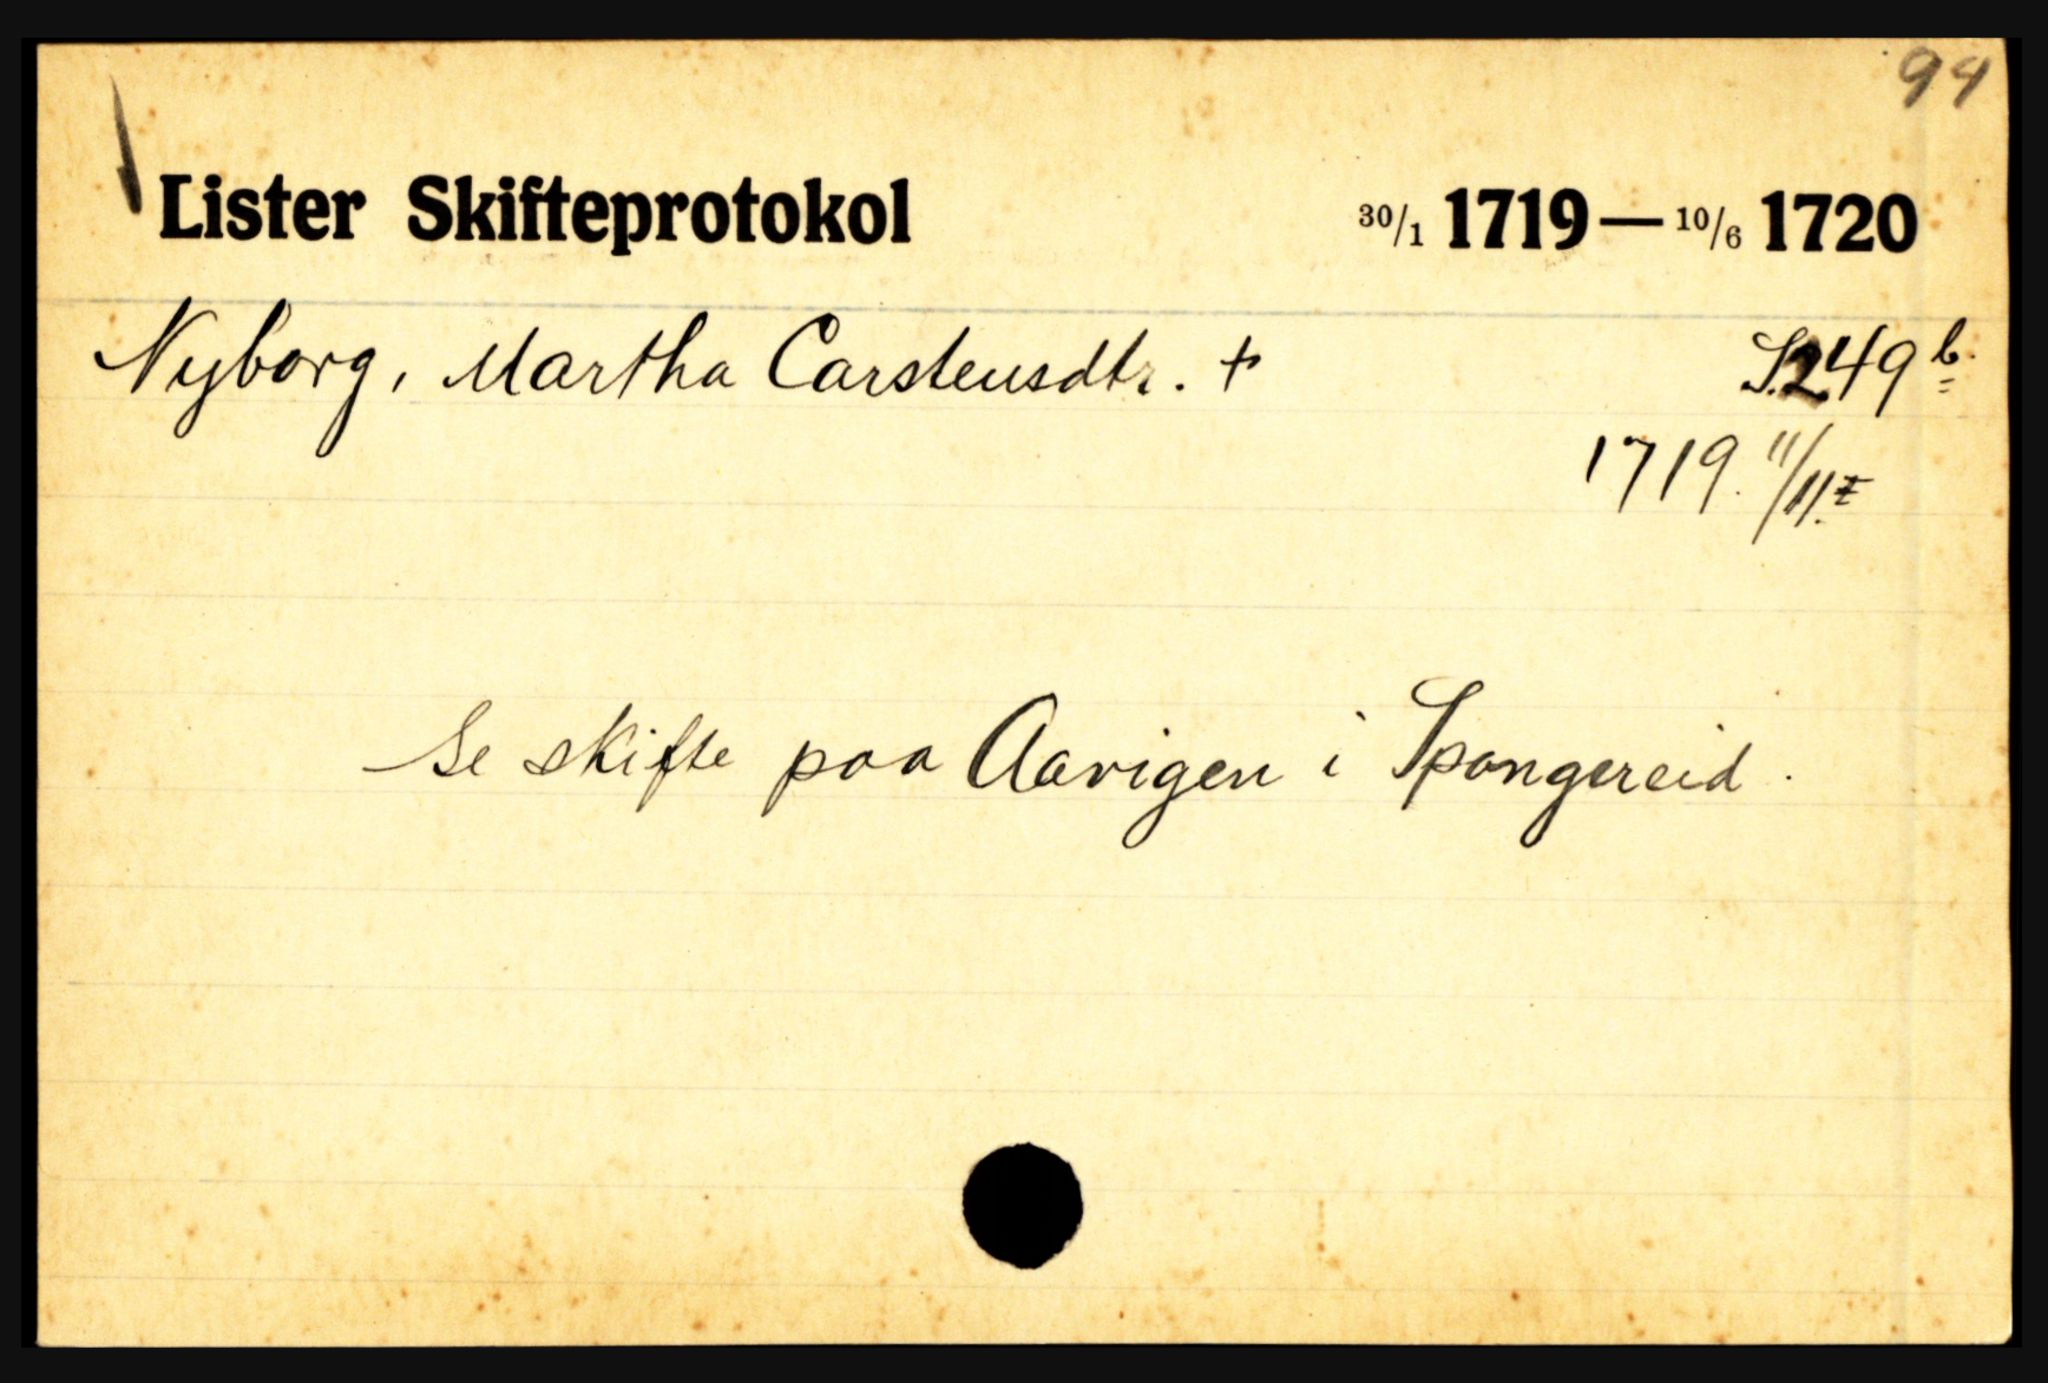 94
Lister Skifteprotokol 30/1 1719 — 10/6 1720
Nyborg, Martha Carstensdtr. + S. 249 b.
1719. 11/11.
Se skifte paa Aavigen i Spangereid.